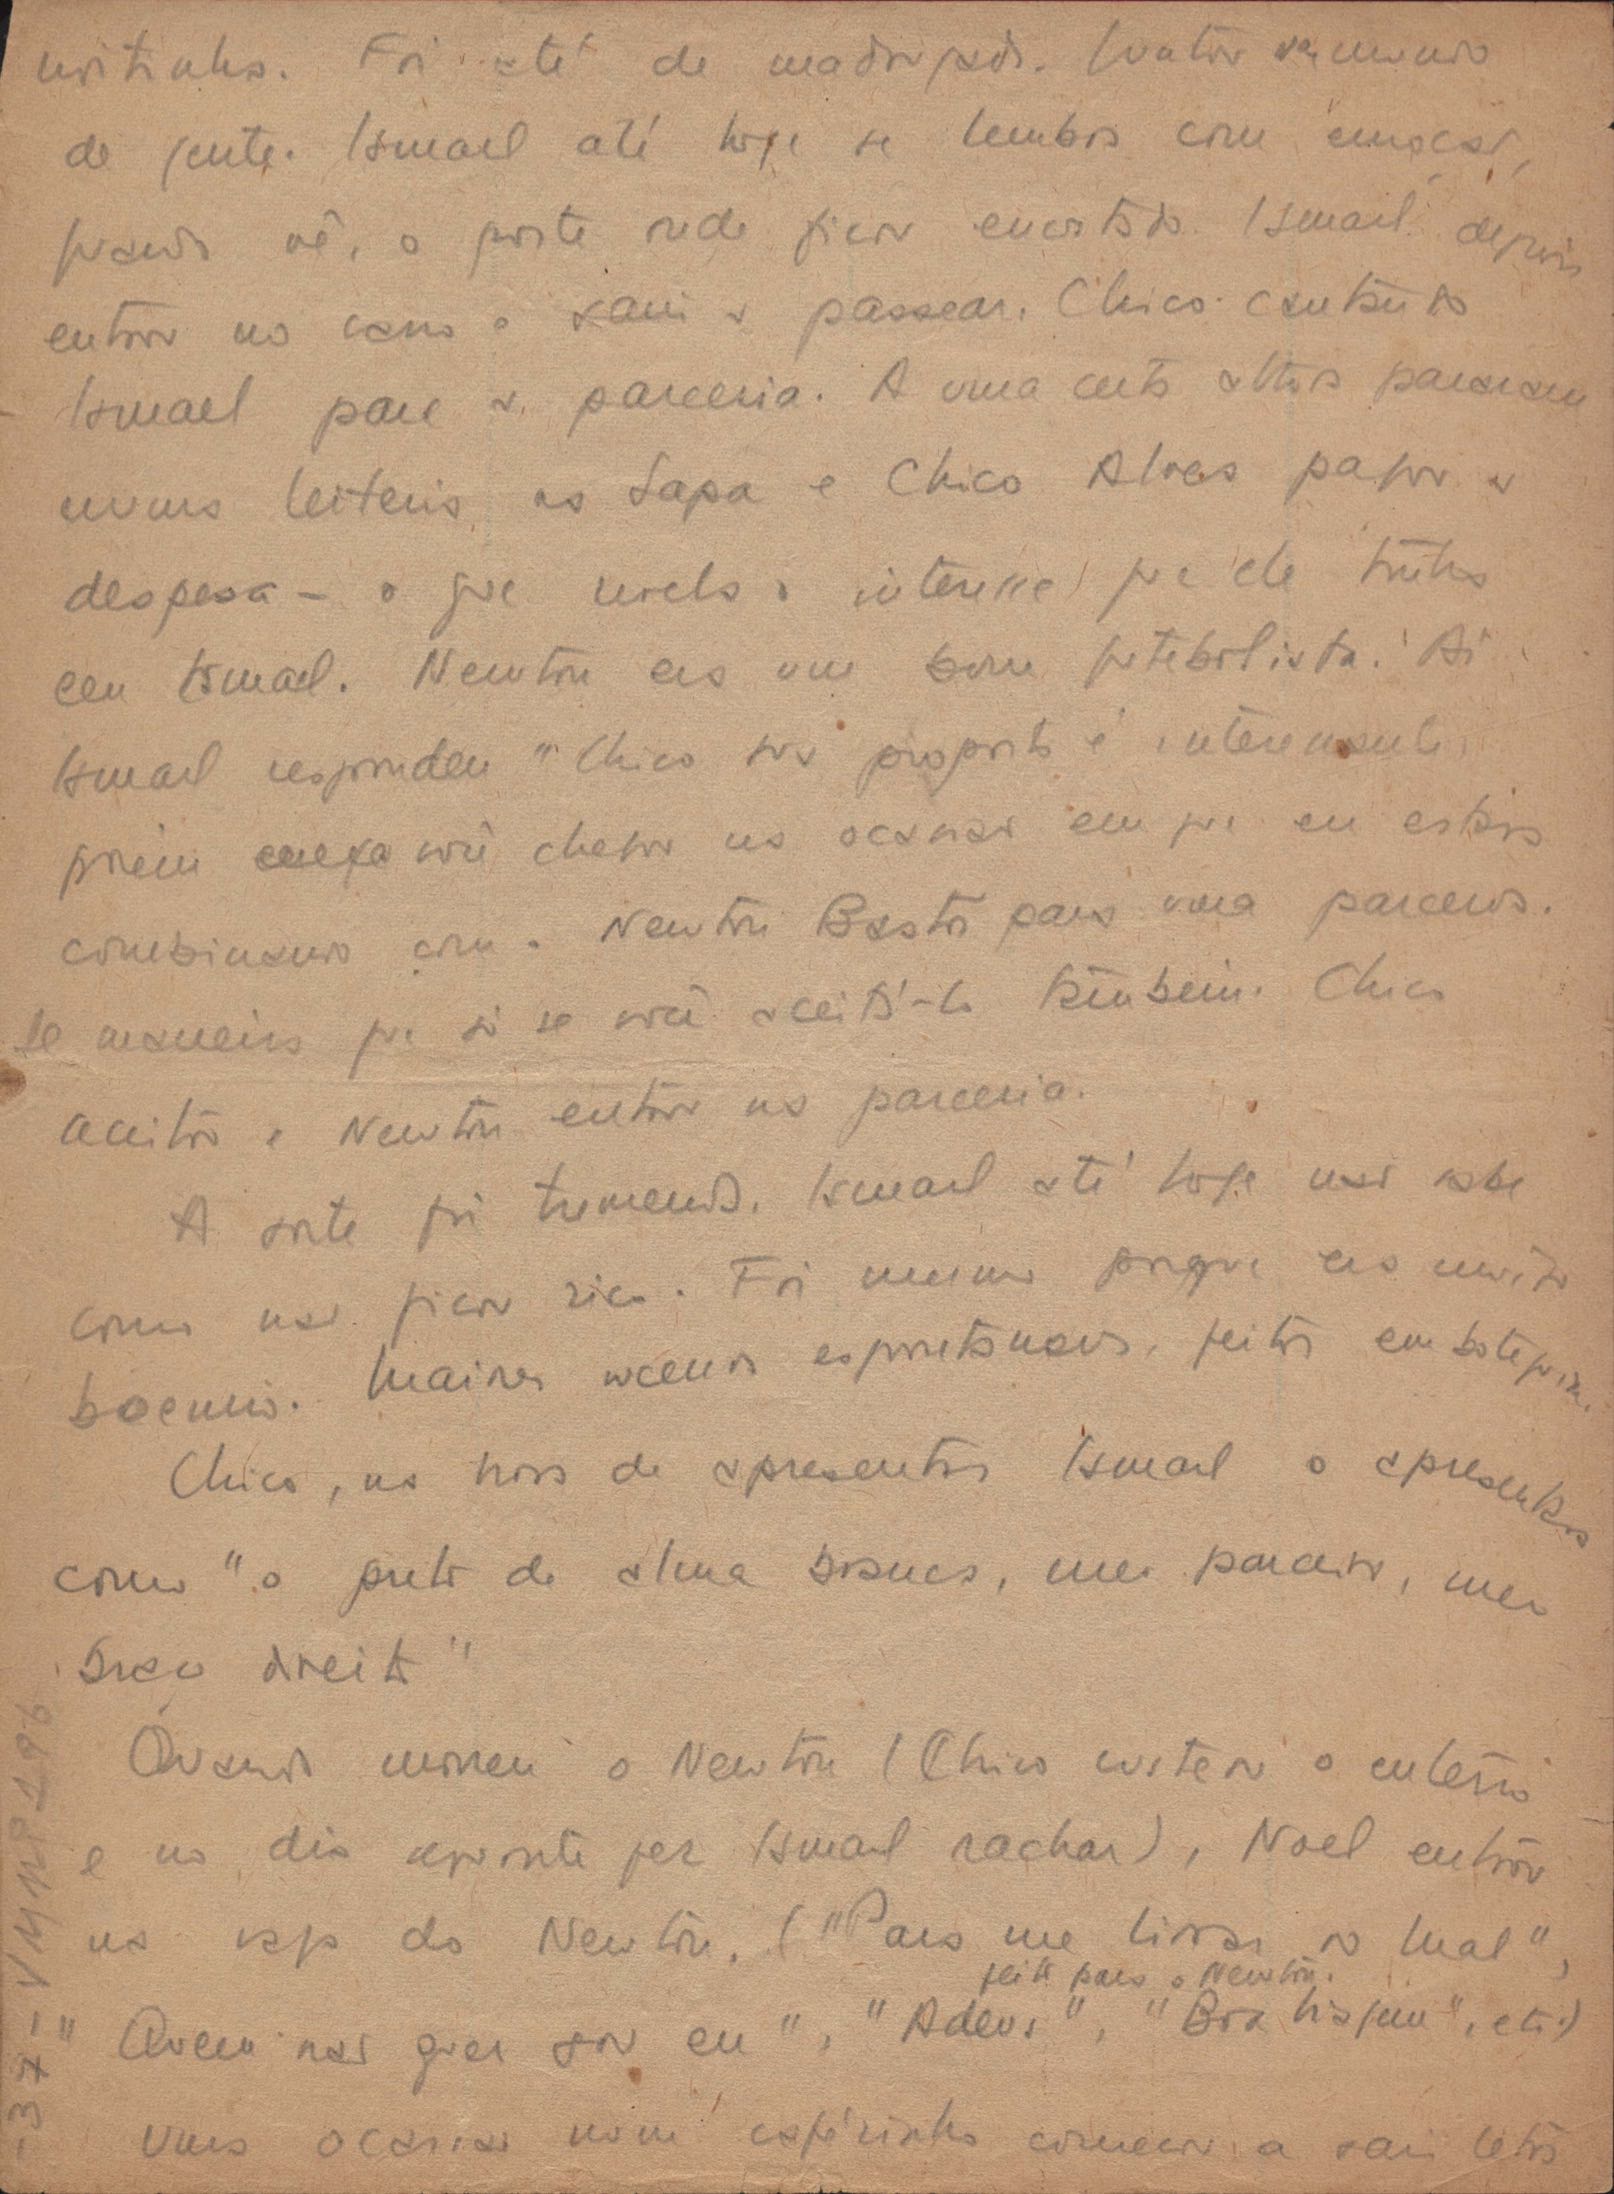 noitinha. Foi até de madrugada. Juntou um mundo
de gente. Ismael até hoje se lembra com emoção,
quando vê, o poste onde ficou encostado. Ismael depois
entrou no carro e saiu a passear. Chico cantando
Ismael para a parceria. A uma certa altura pararam
numa leiteria na Lapa e Chico Alves pagou a
despesa - o que revela o interesse que ele tinha
em Ismael. Newton era um bom futebolista. Aí
Ismael respondeu "Chico sua proposta é interessante,
porém você chegou na ocasião em que eu estava
combinando com o Newton Bastos para uma parceria.
De maneira que só se você aceitá-lo também. Chico
aceitou e Newton entrou na parceria.
A sorte foi tremenda. Ismael até hoje não sabe
como não ficou rico. Foi mesmo porque era muito
boemio. Maiores sucessos espontâneos, feitos em botequim.
Chico, na hora de apresentar Ismael o apresentava
como "o preto de alma branca, meu parceiro, meu
braço direito"
Quando morreu o Newton (Chico custeou o enterro
e no dia seguinte fez Ismael rachar), Noel entrou
na vaga do Newton. ("Para me livrar do Mal",
feito para o Newton.
"Quem não quer sou eu", "Adeus", "Boa viagem", etc.)
Uma ocasião num cafézinho começou a sair letra
-37-VMMP196